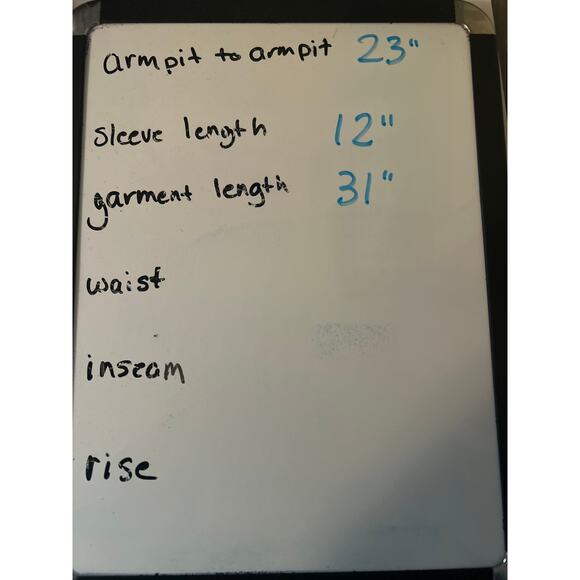 armpit to armpit 23"
sleeve length 12"
garment length 31"
waist
inseam
rise